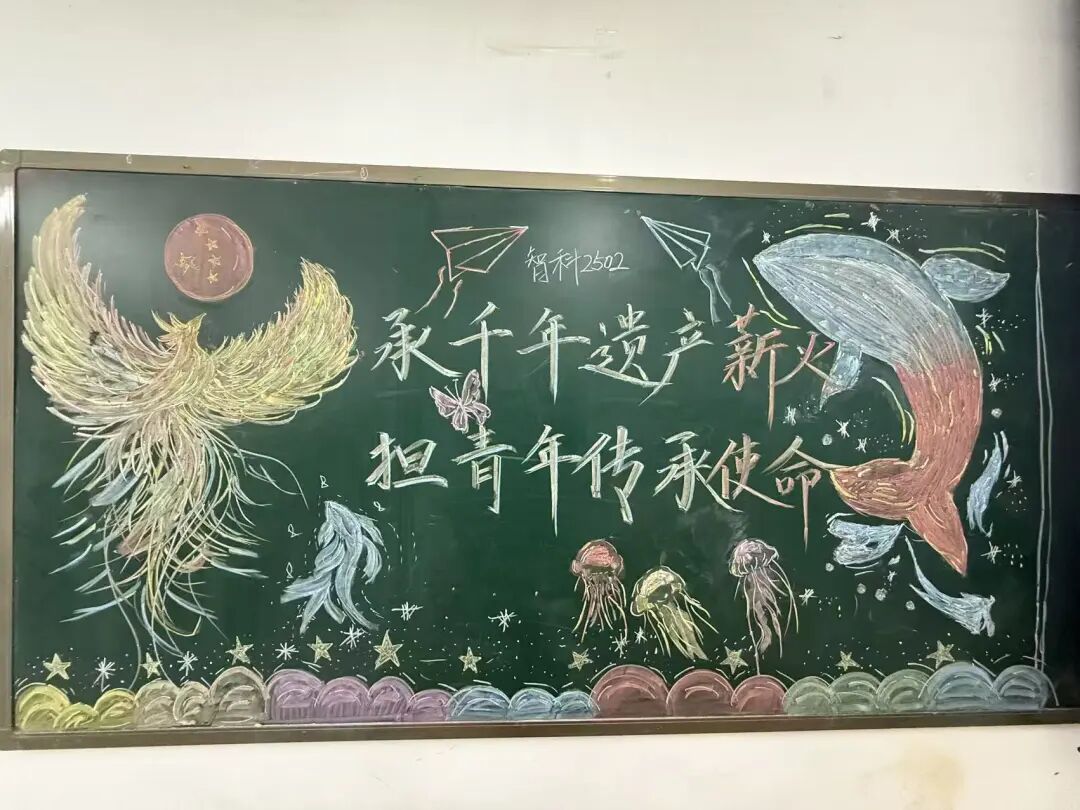 智科2502
承千年遗产薪火
担青年传承使命